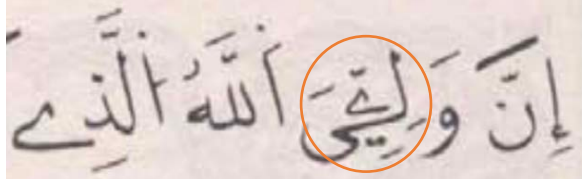 إِنَّ وَلِـِّۧيَ ٱللَّهُ ٱلَّذِے